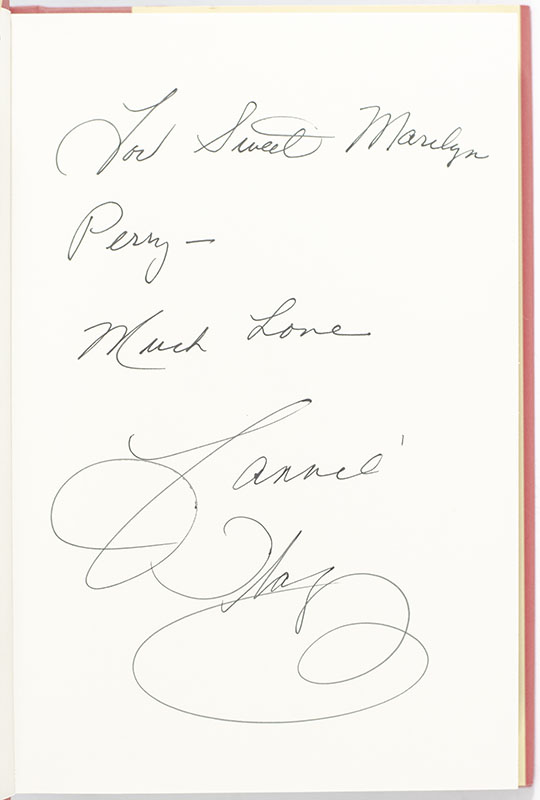 For Sweet Marilyn
Perry —
Much Love
Fannie
Flagg